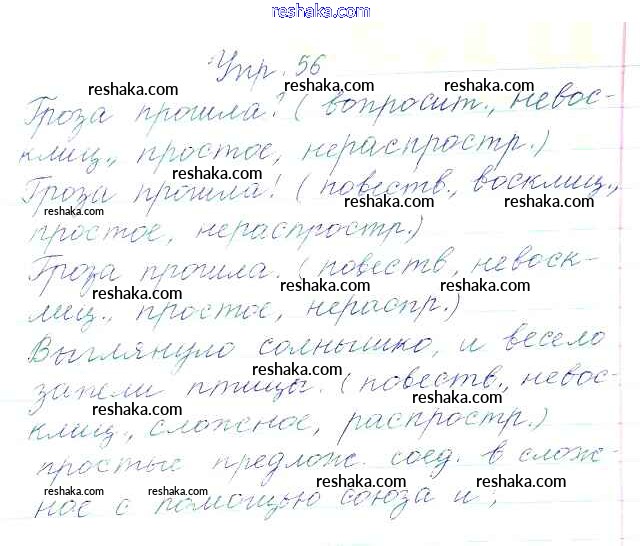 reshaka.com
Упр. 56
reshaka.com reshaka.com
Гроза прошла? (вопросит., невос-
клиц., простое, нераспростр.)
reshaka.com
Гроза прошла! (повеств., восклиц.,
reshaka.com reshaka.com
простое, нераспростр.)
Гроза прошла. (повеств, невоск-
reshaka.com reshaka.com
лиц., простое, нераспр.)
Выглянуло солнышко, и весело
reshaka.com
запели птицы. (повеств., невос-
reshaka.com reshaka.com
клиц., сложное, распростр.)
простые предлож. соед. в слож-
reshaka.com reshaka.com reshaka.com
ное с помощью союза и,